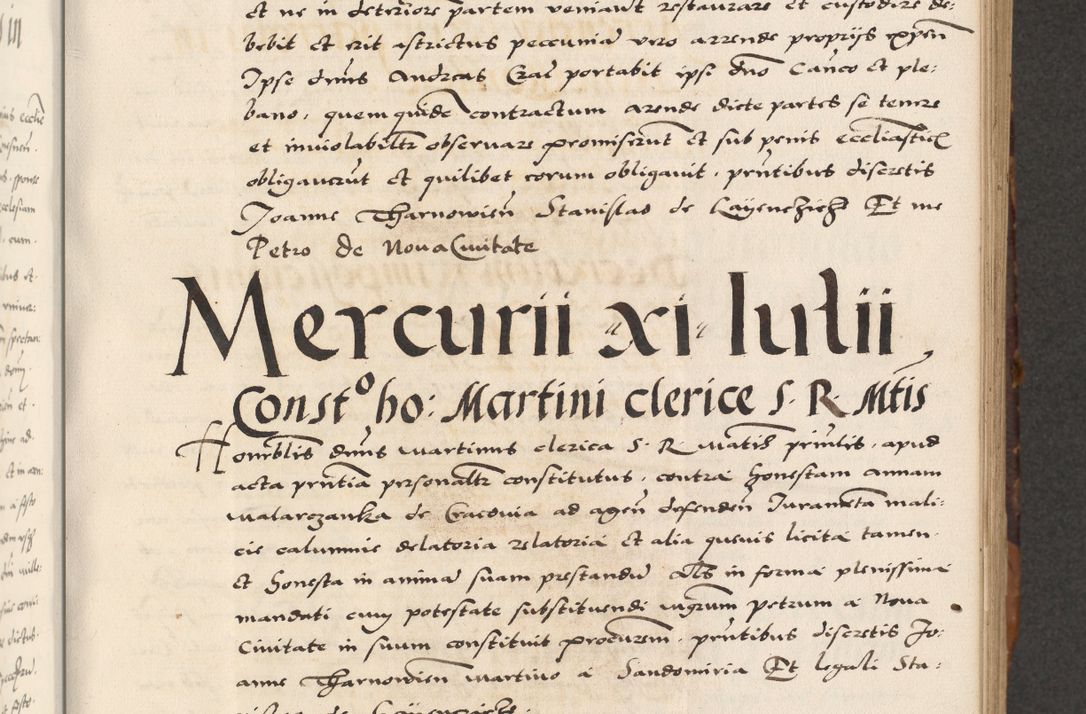 et ne in deteriorẽ partem veniant restaurare et custodire de:
bebit et erit astrictus peccuniã vero arrende proprijs expeñ
Ipse dñus Andreas Craẽ portabit ipsi dño Cañco et ple:
bano, quemquidẽ contractum arende dicte partes se tenere
et inuiolabilr̃ obseruare promiserũt et sub penis eccliastic̃
obligauerũt et quilibet eorum obligauit, prñtibus discretis
Joanne Tharnowieñ Stanislao de Et me
Petro de Noua Ciuitate
Mercurii xi Iulii,
Constº ho: Martini clerice S. R. Mtis
Honorablis dñus Martinus clerica S. R. Matis priñlis, apud
acta prñtia personalr̃ constitutus, contra honestam annam
Malarczanka de Cracouia ad ageñ defendeñ Juramẽta mali:
cie calumnie delatoria relatoria et alia queuis licita tamen
et honesta in animã suam prestandũ als in forma plenissima
mandati cum potestate substituendi mgrum petrum a Noua
Ciuitate in suum constituit procurem̃, prñtibus discretis Jo:
anne Tharnowieñ Martino a Sandomiria Et legali Sta: